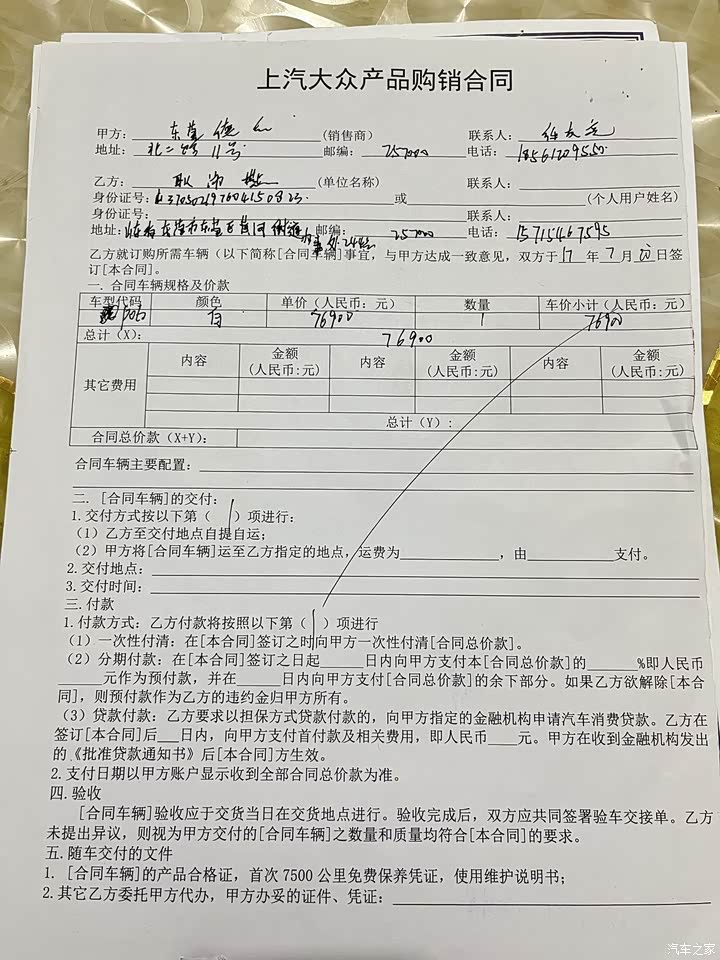 上汽大众产品购销合同
甲方： 东营德 (销售商) 联系人：
地址： 北二路11号 邮编： 257000 电话：
乙方： 耿 (单位名称) 联系人：
身份证号： 或 (个人用户姓名)
身份证号： 联系人：
地址： 邮编： 257000 电话： 15715467595
乙方就订购所需车辆（以下简称[合同车辆]事宜，与甲方达成一致意见，双方于17年7月 日签
订[本合同]。
一.合同车辆规格及价款
车型代码 颜色 单价（人民币：元） 数量 车价小计（人民币：元）
白 76900 1 76900
总计（X）： 76900
其它费用 内容 金额(人民币:元) 内容 金额(人民币:元) 内容 金额(人民币:元)
总计（Y）：
合同总价款（X+Y）：
合同车辆主要配置：
二.[合同车辆]的交付：
1.交付方式按以下第（1）项进行：
（1）乙方至交付地点自提自运；
（2）甲方将[合同车辆]运至乙方指定的地点，运费为 ，由 支付。
2.交付地点：
3.交付时间：
三.付款
1.付款方式：乙方付款将按照以下第（1）项进行
（1）一次性付清：在[本合同]签订之时向甲方一次性付清[合同总价款]。
（2）分期付款：在[本合同]签订之日起 日内向甲方支付本[合同总价款]的 %即人民币
元作为预付款，并在 日内向甲方支付[合同总价款]的余下部分。如果乙方欲解除[本合
同]，则预付款作为乙方的违约金归甲方所有。
（3）贷款付款：乙方要求以担保方式贷款付款的，向甲方指定的金融机构申请汽车消费贷款。乙方在
签订[本合同]后 日内，向甲方支付首付款及相关费用，即人民币 元。甲方在收到金融机构发出
的《批准贷款通知书》后[本合同]方生效。
2.支付日期以甲方账户显示收到全部合同总价款为准。
四.验收
[合同车辆]验收应于交货当日在交货地点进行。验收完成后，双方应共同签署验车交接单。乙方
未提出异议，则视为甲方交付的[合同车辆]之数量和质量均符合[本合同]的要求。
五.随车交付的文件
1.[合同车辆]的产品合格证，首次7500公里免费保养凭证，使用维护说明书；
2.其它乙方委托甲方代办，甲方办妥的证件、凭证：
汽车之家